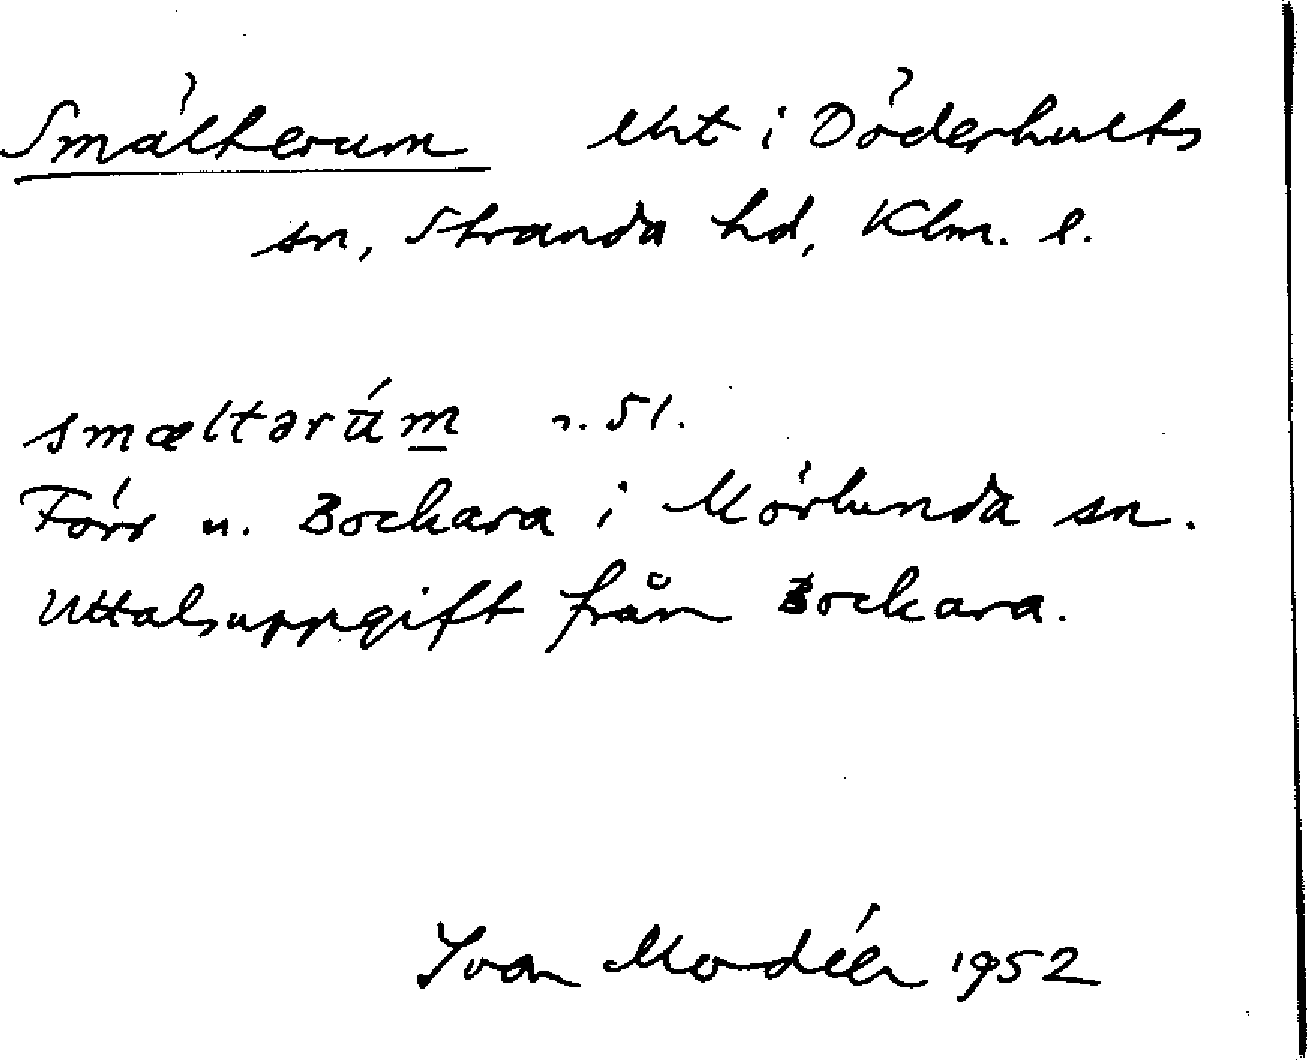 Smälterum Uht i Döderhults
sn, Stranda hd, Klm. l.
smæltərúm n. 51.
Förr u. Bockara i Mörlunda sn.
Uttalsuppgift från Bockara.
Ivar Modéer 1952